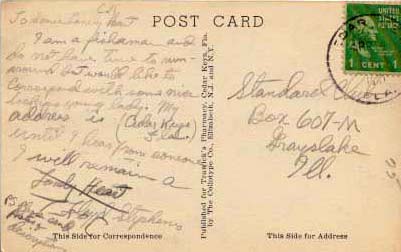 POST CARD
To some lonely heart
I am a fisherman and
do not have time to run
around but would like to
correspond with some nice
looking young lady. My
address is (Cedar Keys
Fla.)
until I hear from someone
I will remain a
Lonly Heart
Floyd Stephens
This Side for Correspondence
Published for Truwick's Pharmacy, Cedar Keys, Fla.
by The Collotype Co., Elizabeth, N.J. and N.Y.
UNITED STATES
POSTAGE
1 CENT 1
FLA.
Standard Club
Box 607-M
Grayslake
Ill.
This Side for Address